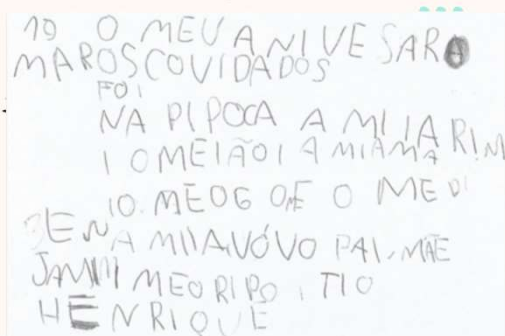 10 O MEU ANIVESARO
MAROS COVIDADOS
FOI
NA PIPOCA A MIIARIM
I O MEIÃO I A MIAMA
IO. MEOG OME O MEU
BENA MIIAVÓVO PAI, MÃE
MEO RIPO, TIO
HENRIQUE